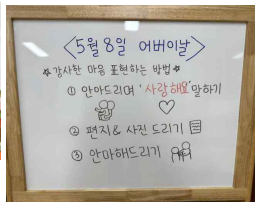 <5월 8일 어버이날>
☆감사한 마음 표현하는 방법☆
① 안아드리며 '사랑해요'말하기
② 편지 & 사진 드리기
③ 안마해드리기